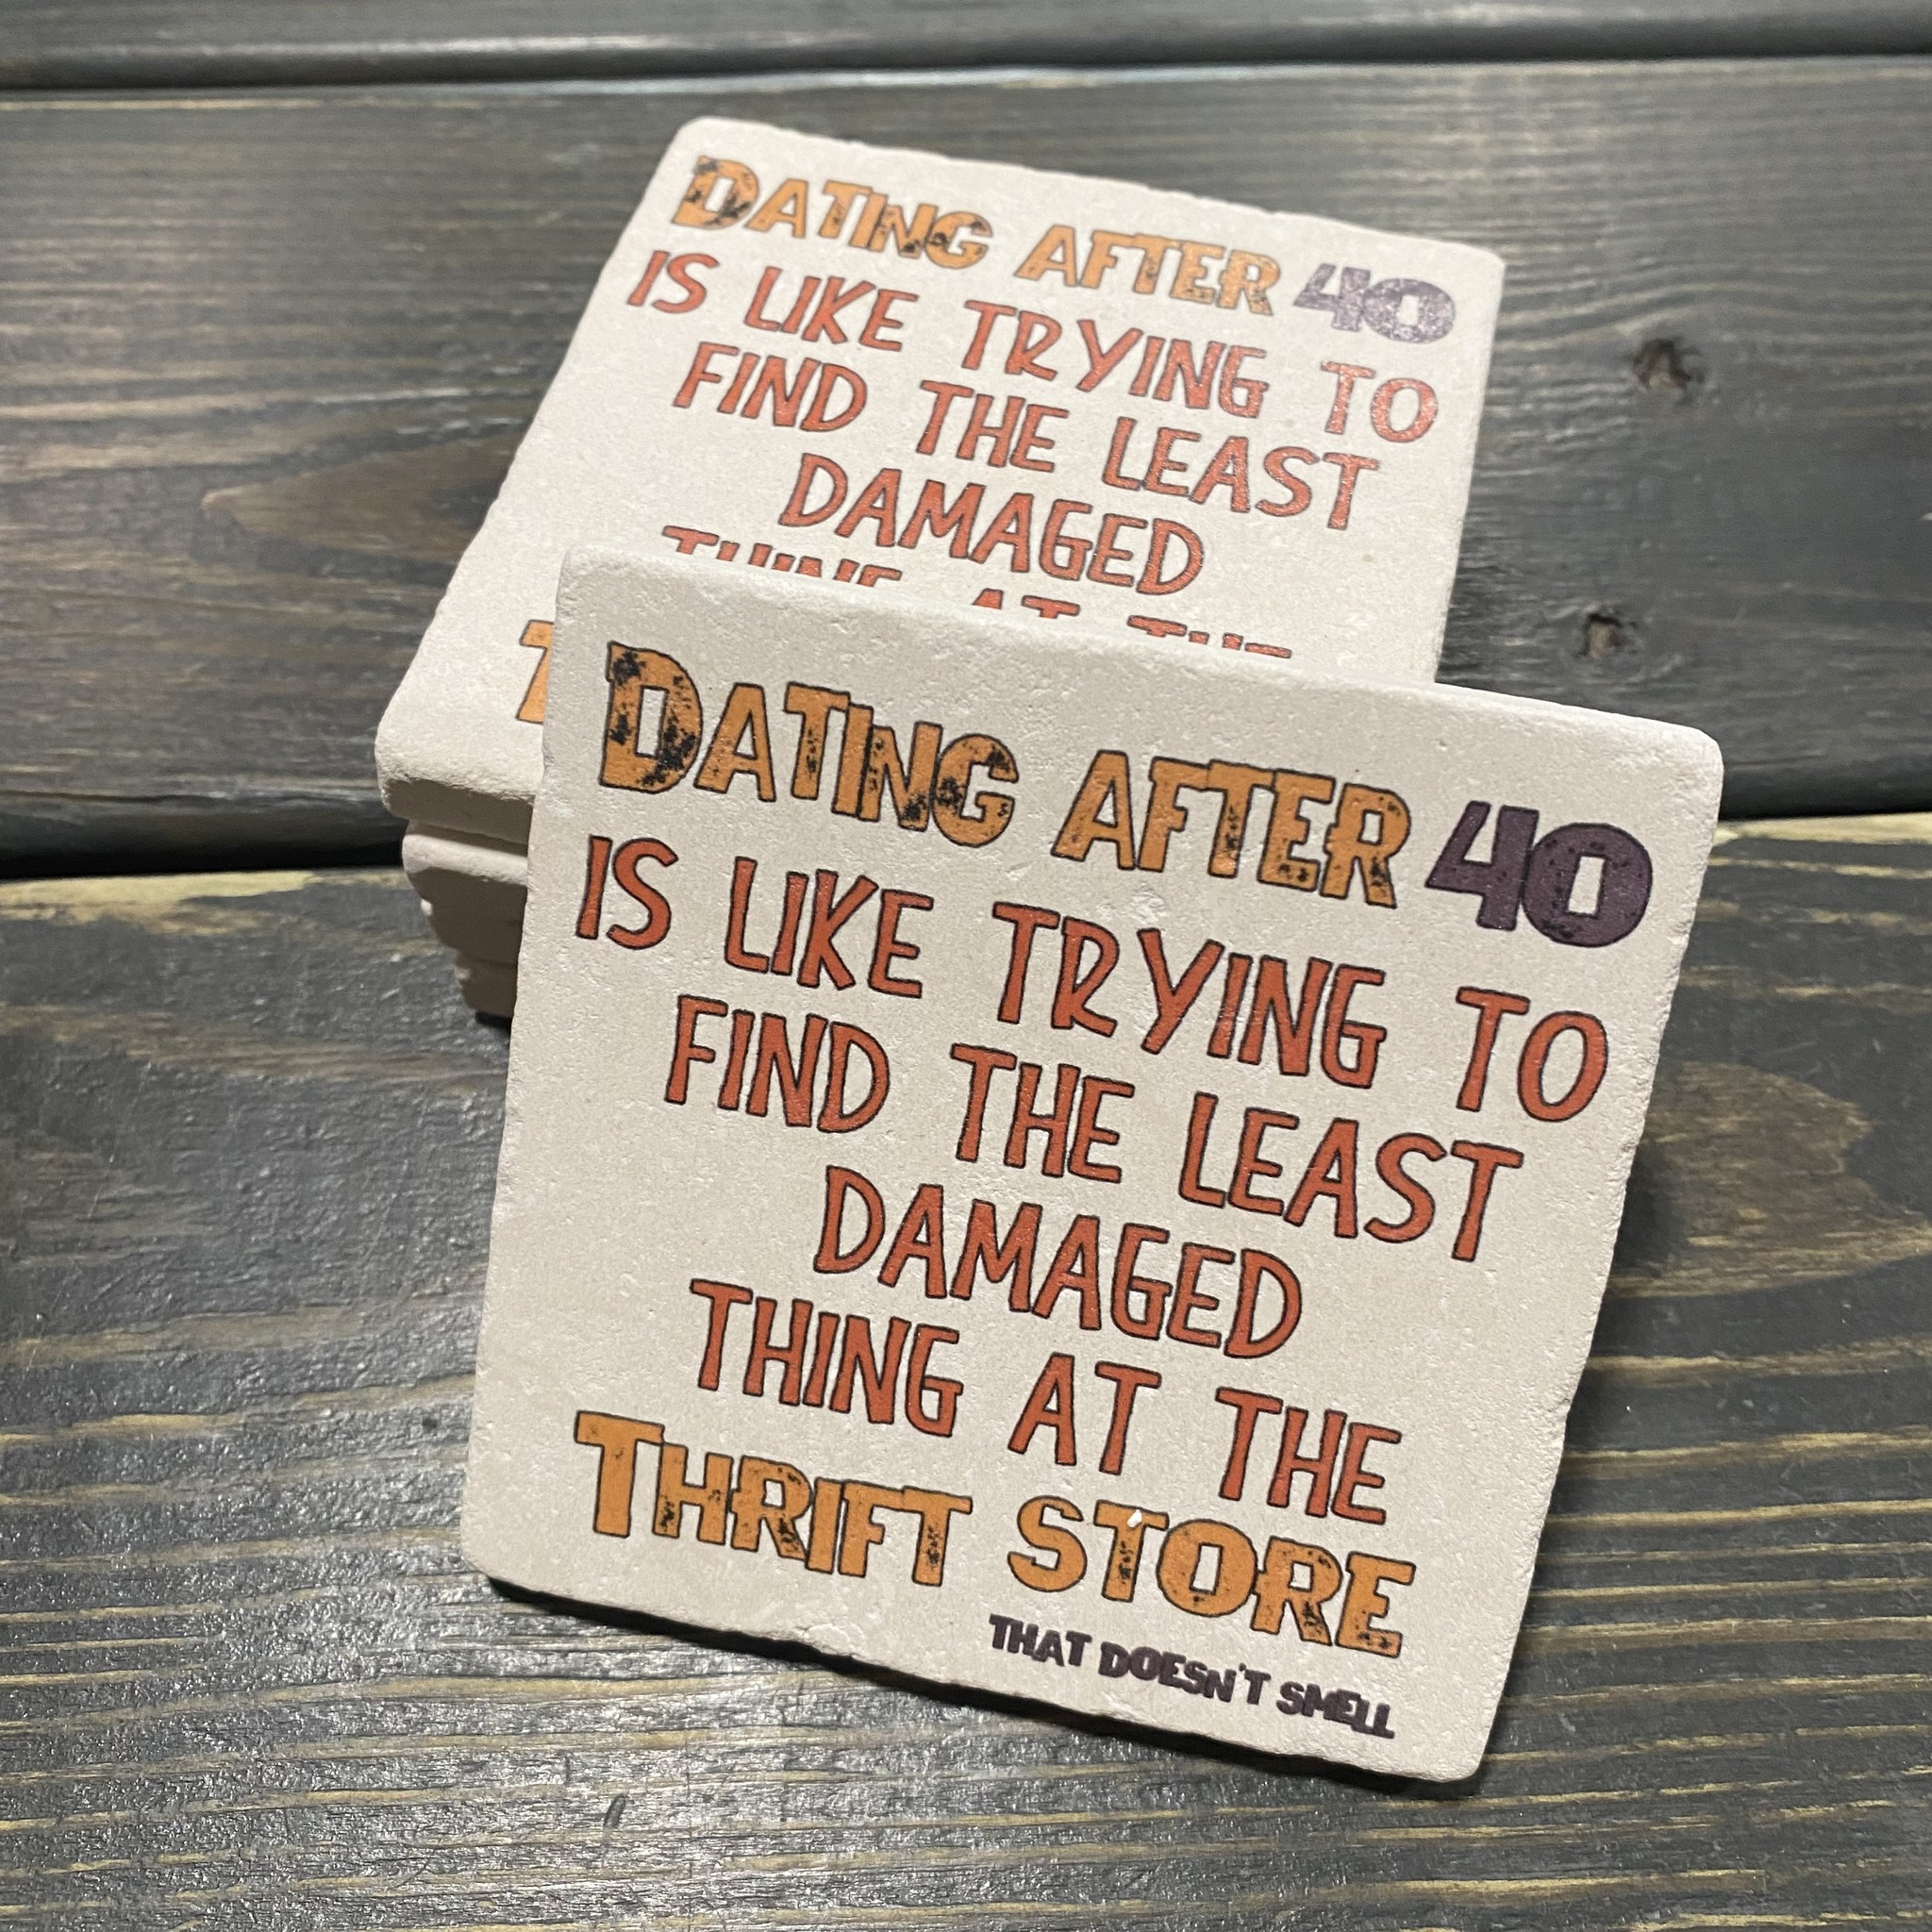 DATING AFTER 40
IS LIKE TRYING TO
FIND THE LEAST
DAMAGED
THING AT THE
DATING AFTER 40
IS LIKE TRYING TO
FIND THE LEAST
DAMAGED
THING AT THE
THRIFT STORE
THAT DOESN'T SMELL